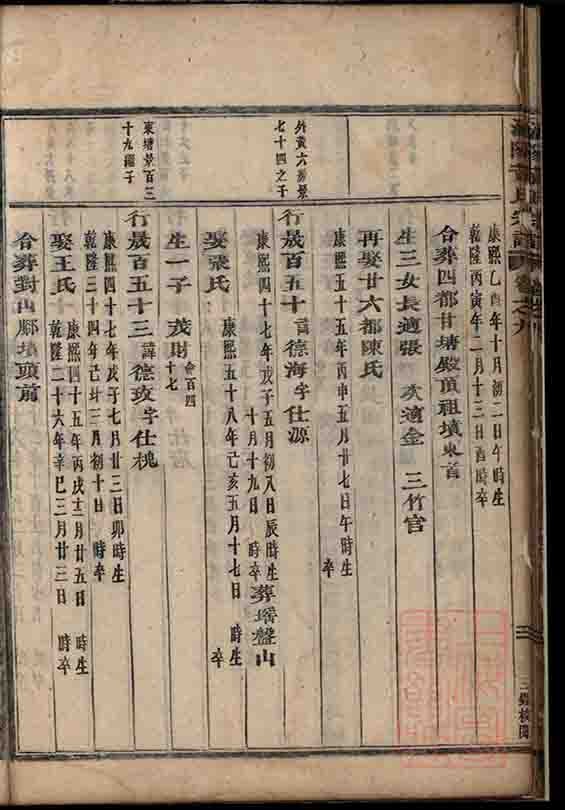 康熙乙酉年十月初二日午時生
乾隆丙寅年二月十三日酉時卒
合葬四都甘塘殿頂祖墳東首
生三女長適張 次適金 三竹官
再娶廿六都陳氏
康熙五十五年丙申五月廿七日午時生
卒
外黃六房景
七十四之子
行晟百五十 諱德海字仕源
康熙四十七年戊子五月初八日辰時生
十月十九日 時卒
葬瑤盤山
娶張氏
康熙五十八年己亥五月十七日 時生
卒
生一子 茂財
命百四
十七
東塘景百三
十九繼子
行晟百五十三 諱德玫字仕槐
康熙四十七年戊子七月廿三日卯時生
乾隆三十四年己丑三月初十日 時卒
娶王氏
康熙四十五年丙戌十二月廿五日 時生
乾隆二十六年辛巳三月廿三日 時卒
合葬對山腳墳頭前